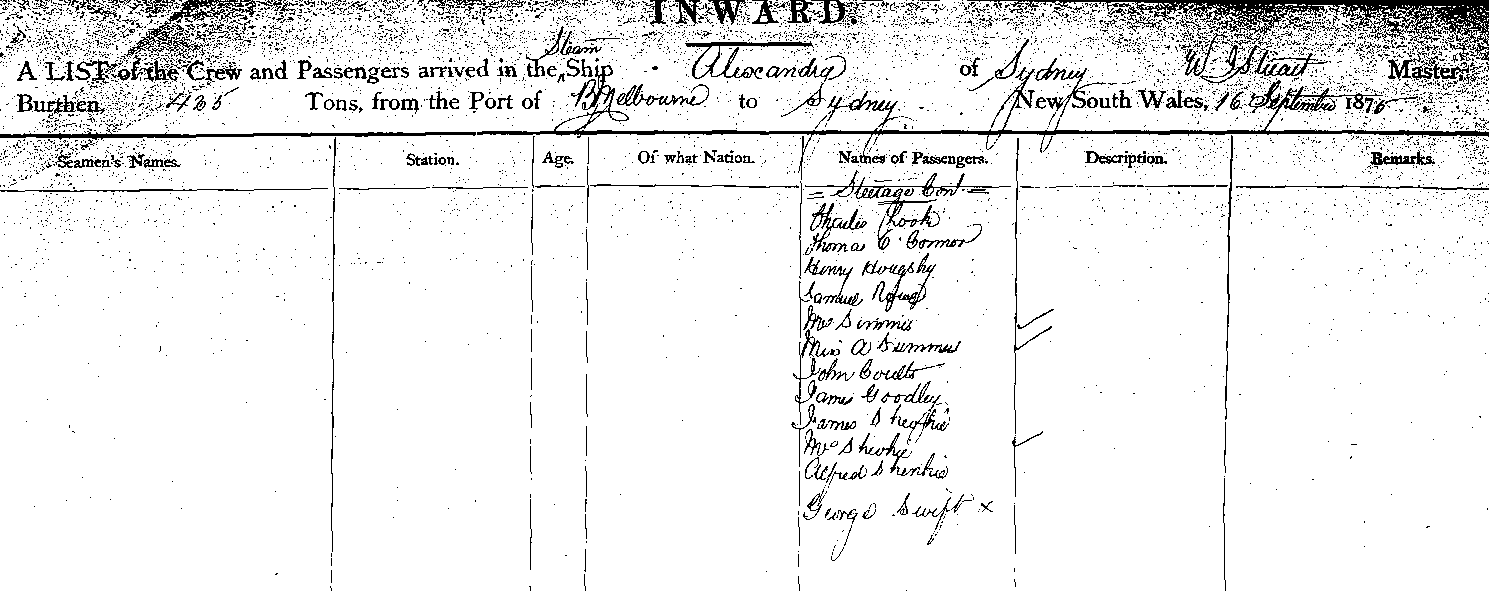 INWARD.
Steam
A LIST of the Crew and Passengers arrived in the Ship Alexandra of Sydney W J Stuart Master,
Burthen 425 Tons, from the Port of Melbourne to Sydney New South Wales, 16 September 1876
Seamen's Names. Station. Age. Of what Nation. Names of Passengers. Description. Remarks.
= Steerage Con =
Charles Chook
Thomas O'Connor
Henry
Samuel
Mrs Simmis
Miss A Summers
John Coults
James Goodley
James
Mrs
Alfred
George Swift x